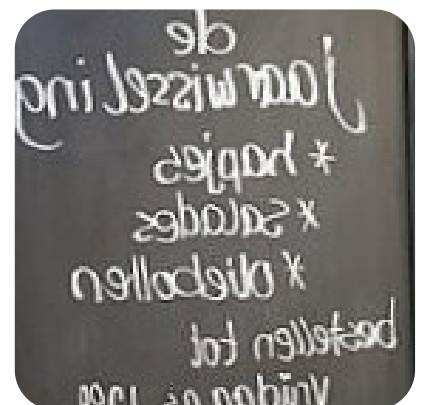 de
jaarwisseling
* hapjes
* salades
* oliebollen
bestellen tot
vrijdag